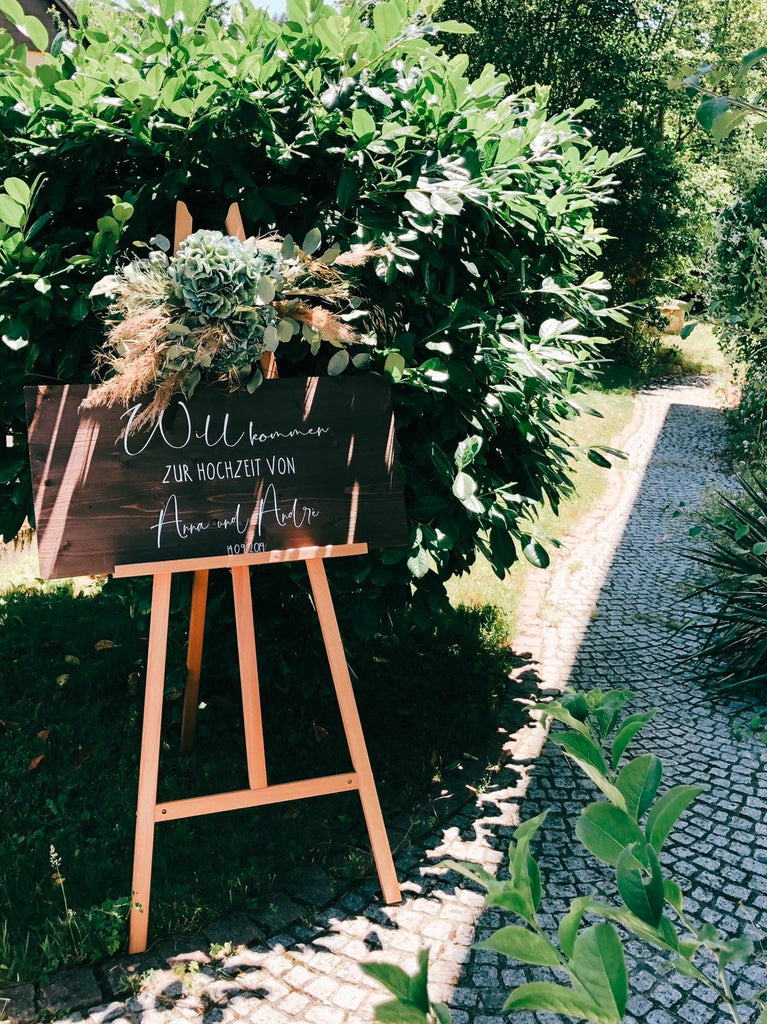 Willkommen
ZUR HOCHZEIT VON
Anna und André